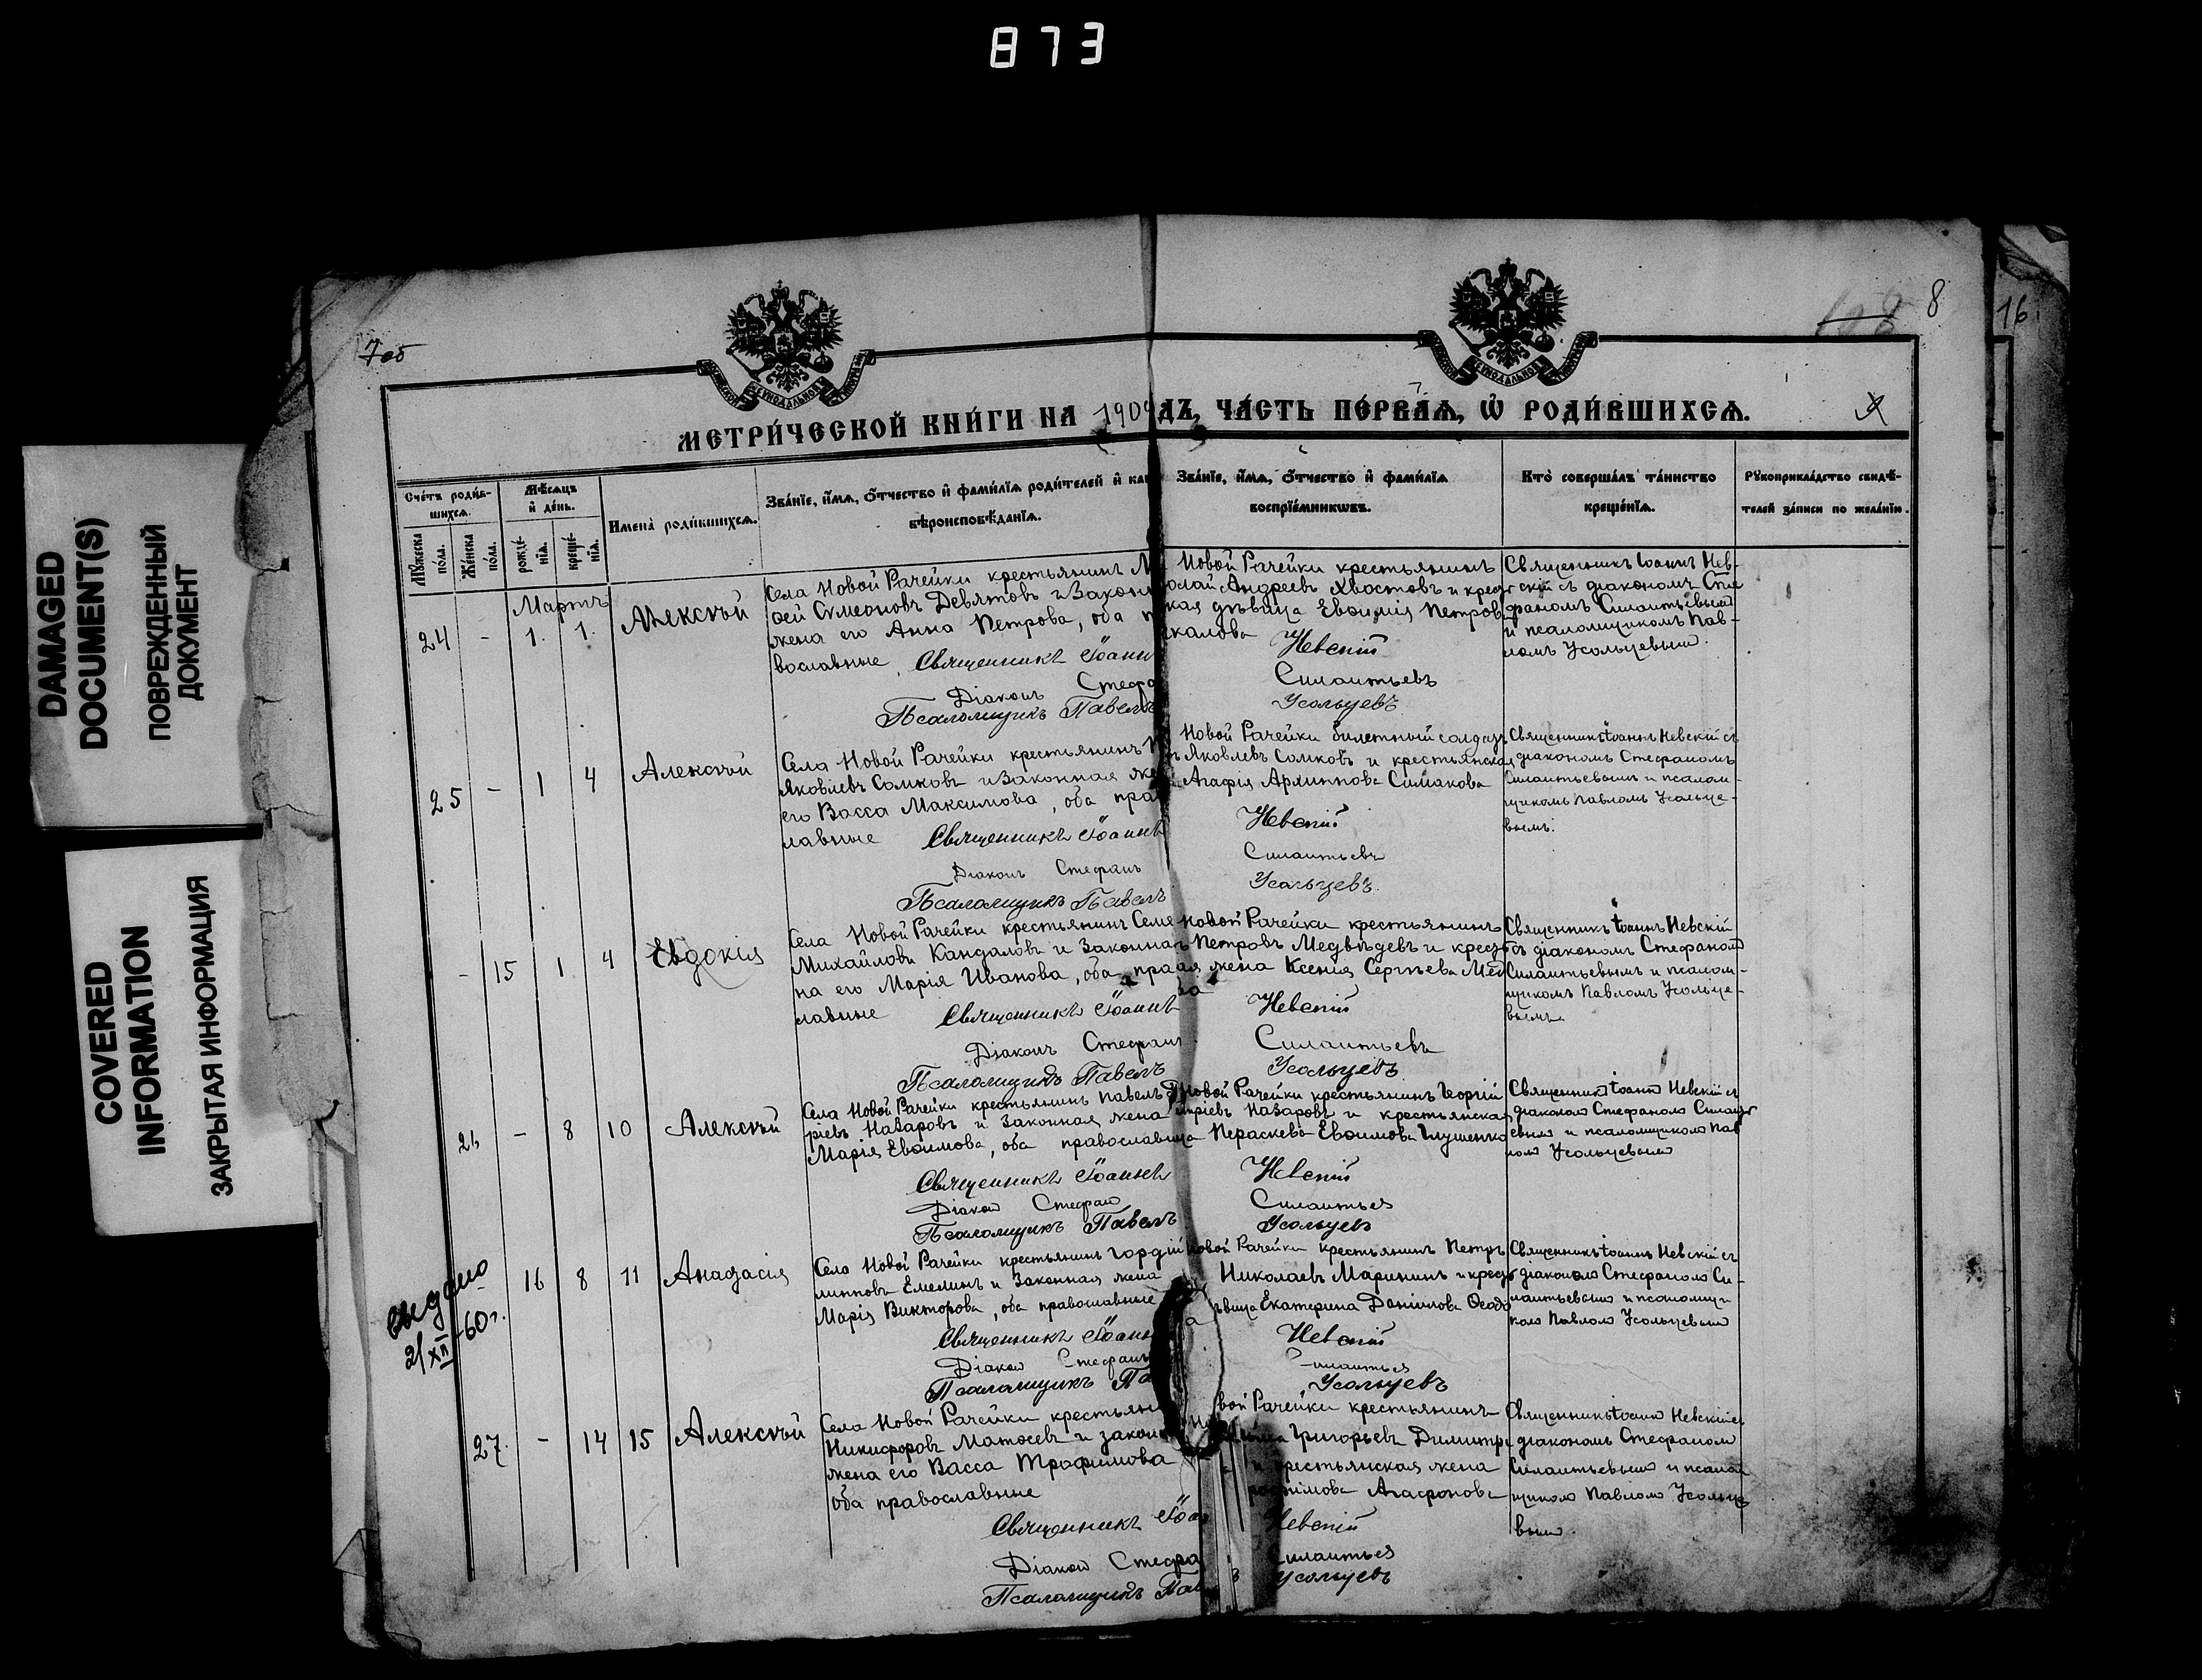 873
DAMAGED
DOCUMENT(S)
ПОВРЕЖДЕННЫЙ
ДОКУМЕНТ
COVERED
INFORMATION
ЗАКРЫТАЯ ИНФОРМАЦИЯ
7об
8
16
МЕТРИ́ЧЕСКОЙ КНИ́ГИ НА 1909 ДЪ, ЧА́СТЬ ПЕ́РВАѦ, Ѡ҆ РОДИ́ВШИХСѦ.
Сче́тъ роди́в-
шихсѧ.
Мꙋжеска
по́ла.
Же́нска
по́ла.
Мѣ́сѧцъ
и҆ де́нь.
рожде́-
нїѧ.
креще́-
нїѧ.
Имена̀ роди́вшихсѧ.
Зва́нїе, и҆́мѧ, ѻ҆́тчество и҆ фами́лїѧ роди́телей и҆ как
вѣроисповѣ́данїѧ.
Зва́нїе, и҆́мѧ, ѻ҆́тчество и҆ фами́лїѧ
воспрїе́мникѡвъ.
Кто̀ соверша́лъ та́инство
креще́нїѧ.
Рꙋкоприкла́дство свидѣ́-
телей за́писи по жела́нїю.
Мартъ
24 - 1. 1. Алексѣй
Села Новой Рачейки крестьянинъ М
ѳей Симеоновъ Девятовъ и закон
жена его Анна Петрова, оба п
вославные
Священникъ Іоанн
Діаконъ Стефа
Псаломщикъ Павелъ
Новой Рачейки крестьянинъ
олай Андреевъ Хвостовъ и крест
кая дѣвица Евѳимія Петров
калова
Невскій
Силантьевъ
Усольцевъ
Священникъ Іоаннъ Нев-
скій съ діакономъ Сте
фаномъ Силантьевымъ
и псаломщикомъ Пав-
ломъ Усольцевымъ.
25 - 1 4 Алексѣй
Села Новой Рачейки крестьянинъ
Яковлевъ Сомковъ и законная же
его Васса Максимова, оба пра
лавные
Священникъ Іоаннъ
Діаконъ Стефанъ
Псаломщикъ Павелъ
Новой Рачейки билетный солдатъ
Яковлевъ Сомковъ и крестьянская
Агафія Архиппова Симакова
Невскій
Силантьевъ
Усольцевъ.
Священникъ Іоаннъ Невскій съ
діакономъ Стефаномъ
Силантьевымъ и псалом-
щикомъ Павломъ Усольце-
вымъ.
- 15 1 4 Евдокія
Села Новой Рачейки крестьянинъ Семе
Михайловъ Кандаловъ и законная
на его Марія Иванова, оба пра
лавные
Священникъ Іоаннъ
Діаконъ Стефанъ
Псаломщикъ Павелъ
Новой Рачейки крестьянинъ
Петровъ Медвѣдевъ и крест
ая жена Ксенія Сергѣева Мед
ва
Невскій
Силантьевъ
Усольцевъ
Священникъ Іоаннъ Невскій
съ діакономъ Стефаномъ
Силантьевымъ и псалом-
щикомъ Павломъ Усольце-
вымъ.
26 - 8 10 Алексѣй
Села Новой Рачейки крестьянинъ Павелъ
ріевъ Назаровъ и законная жена
Марія Евѳимова, оба православны
Священникъ Іоаннъ
Діаконъ Стефанъ
Псаломщикъ Павелъ
Новой Рачейки крестьянинъ Георгій
ріевъ Назаровъ и крестьянская
Параскева Евѳимова Глушенко
Невскій
Силантьев
Усольцев
Священникъ Іоаннъ Невскій съ
діакономъ Стефаномъ Силант
евымъ и псаломщикомъ Пав
ломъ Усольцевымъ
выдано
2/XII-60г.
16 8 11 Анастасія
Села Новой Рачейки крестьянинъ Гордій
липповъ Емелинъ и законная жена
Марія Викторова, оба православные
Священникъ Іоанн
Діаконъ Стефанъ
Псаломщикъ Па
Новой Рачейки крестьянинъ Петръ
Николаевъ Маринин и крест
ѣвица Екатерина Даніилова Ѳедо
а
Невскій
Силантьев
Усольцевъ
Священникъ Іоаннъ Невскій съ
діакономъ Стефаномъ Си-
лантьевымъ и псаломщи
комъ Павломъ Усольцевымъ
27. - 14 15 Алексѣй
Села Новой Рачейки крестьян
Никифоровъ Матосевъ и закон
жена его Васса Трофимова
оба православные
Священникъ Іоа
Діаконъ Стефа
Псаломщикъ Пав
вой Рачейки крестьянинъ
Григорьевъ Димитр
и крестьянская жена
Агафонова
Невскій
Силантьев
Усольцевъ
Священникъ Іоаннъ Невскій съ
діакономъ Стефаномъ
Силантьевымъ и псалом
щикомъ Павломъ Усольце
вымъ.